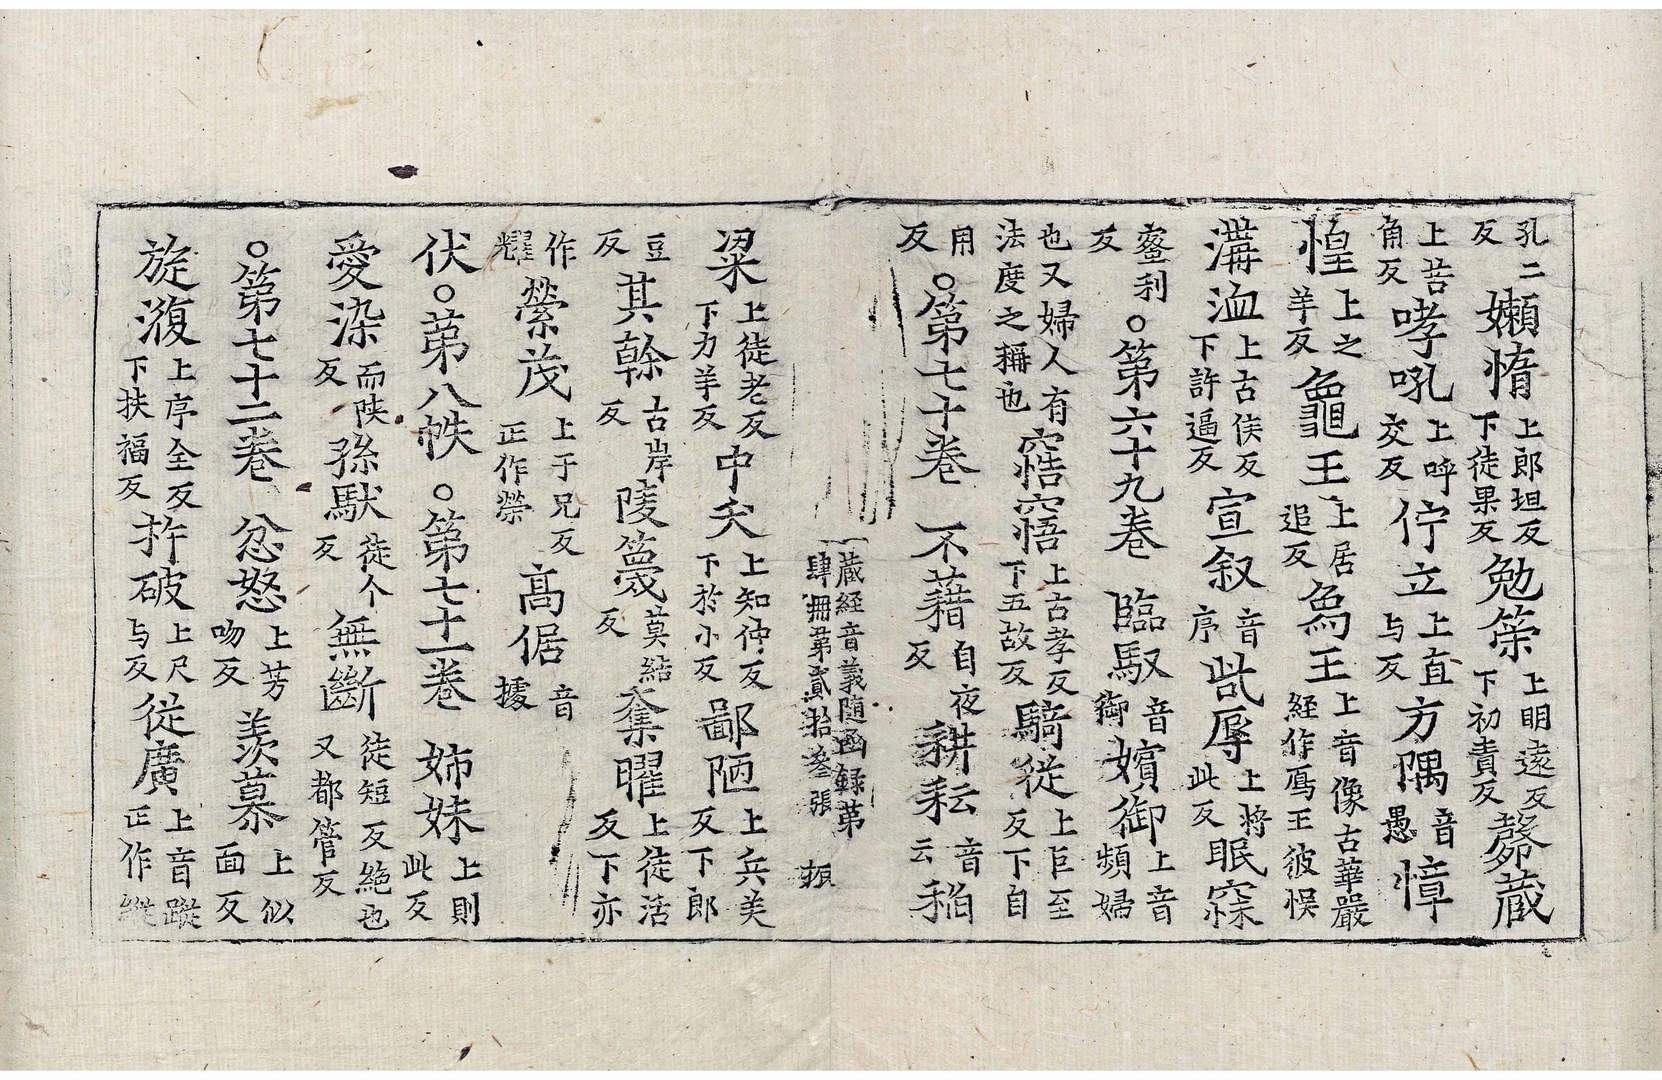 孔二反懶惰上郎坦反下徒果反勉䇿上明遠反下初責反發蔵
上苦角反哮吼上呼交反佇立上直与反方隅音愚慞
惶上之羊反龜王上居追反烏王上音像古華嚴経作鳫王彼悮
溝洫上古侯反下許逼反宣叙音序呰辱上將此反眠寐
蜜利反○第六十九卷 臨馭音御嬪御上音頻婦
也又婦人有法度之稱也窹寤上古孝反下五故反騎従上巨至反下自
用反○第七十卷 不藉自夜反耕耘音云稻
蔵経音義随函録第肆冊第貳拾叄張 振
粱上徒老反下力羊反中夭上知仲反下於小反鄙陋上兵美反下郎
豆反其幹古岸反陵篾莫結反奪曜上徒活反下亦
作耀縈茂上于兄反正作榮髙倨音據
伏○第八帙 ○第七十一卷 姉妹上則此反
愛染而陕反孫馱徒个反無斷徒短反絶也又都管反
○第七十二卷 忿怒上芳吻反羨慕上似面反
旋澓上序全反下扶福反杵破上尺与反従廣上音蹤正作縱